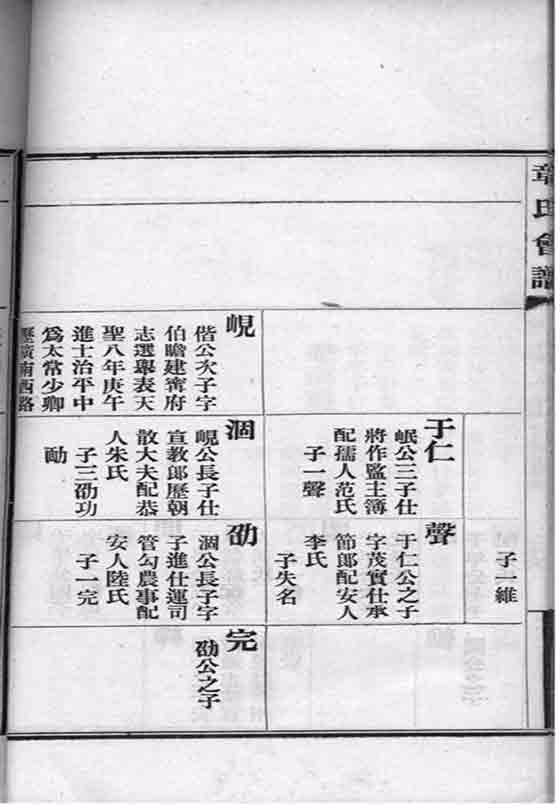 章氏會譜
子一維
于仁
岷公三子仕
將作監主簿
配孺人范氏
子一聲
聲
于仁公之子
字茂實仕承
節郎配安人
李氏
子失名
峴
偕公次子字
伯瞻建寗府
志選舉表天
聖八年庚午
進士治平中
爲太常少卿
歷廣南西路
涸
峴公長子仕
宣教郎歷朝
散大夫配恭
人朱氏
子三劭功
劭
涸公長子字
子進仕運司
管勾農事配
安人陸氏
子一完
完
劭公之子